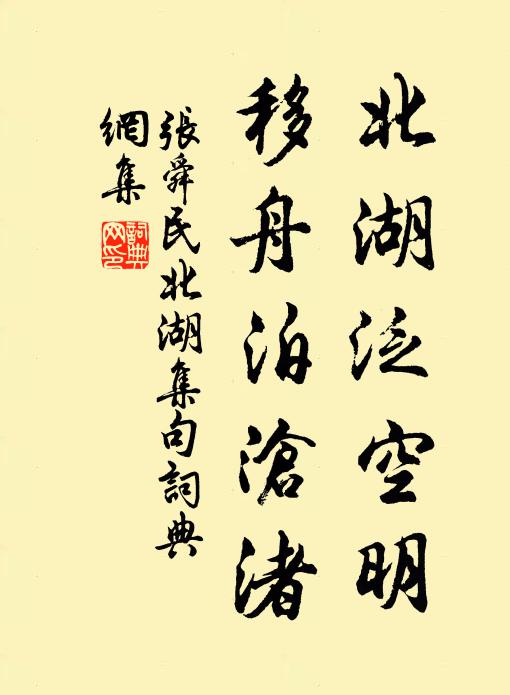 北湖泛空明
移舟泊滄渚
張舜民北湖集句詞典
網集
詞典
网印